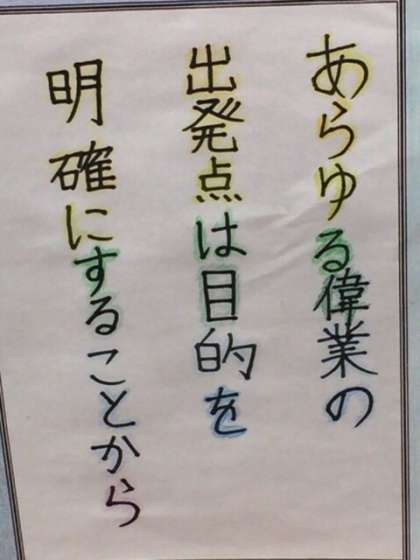 あらゆる偉業の
出発点は目的を
明確にすることから